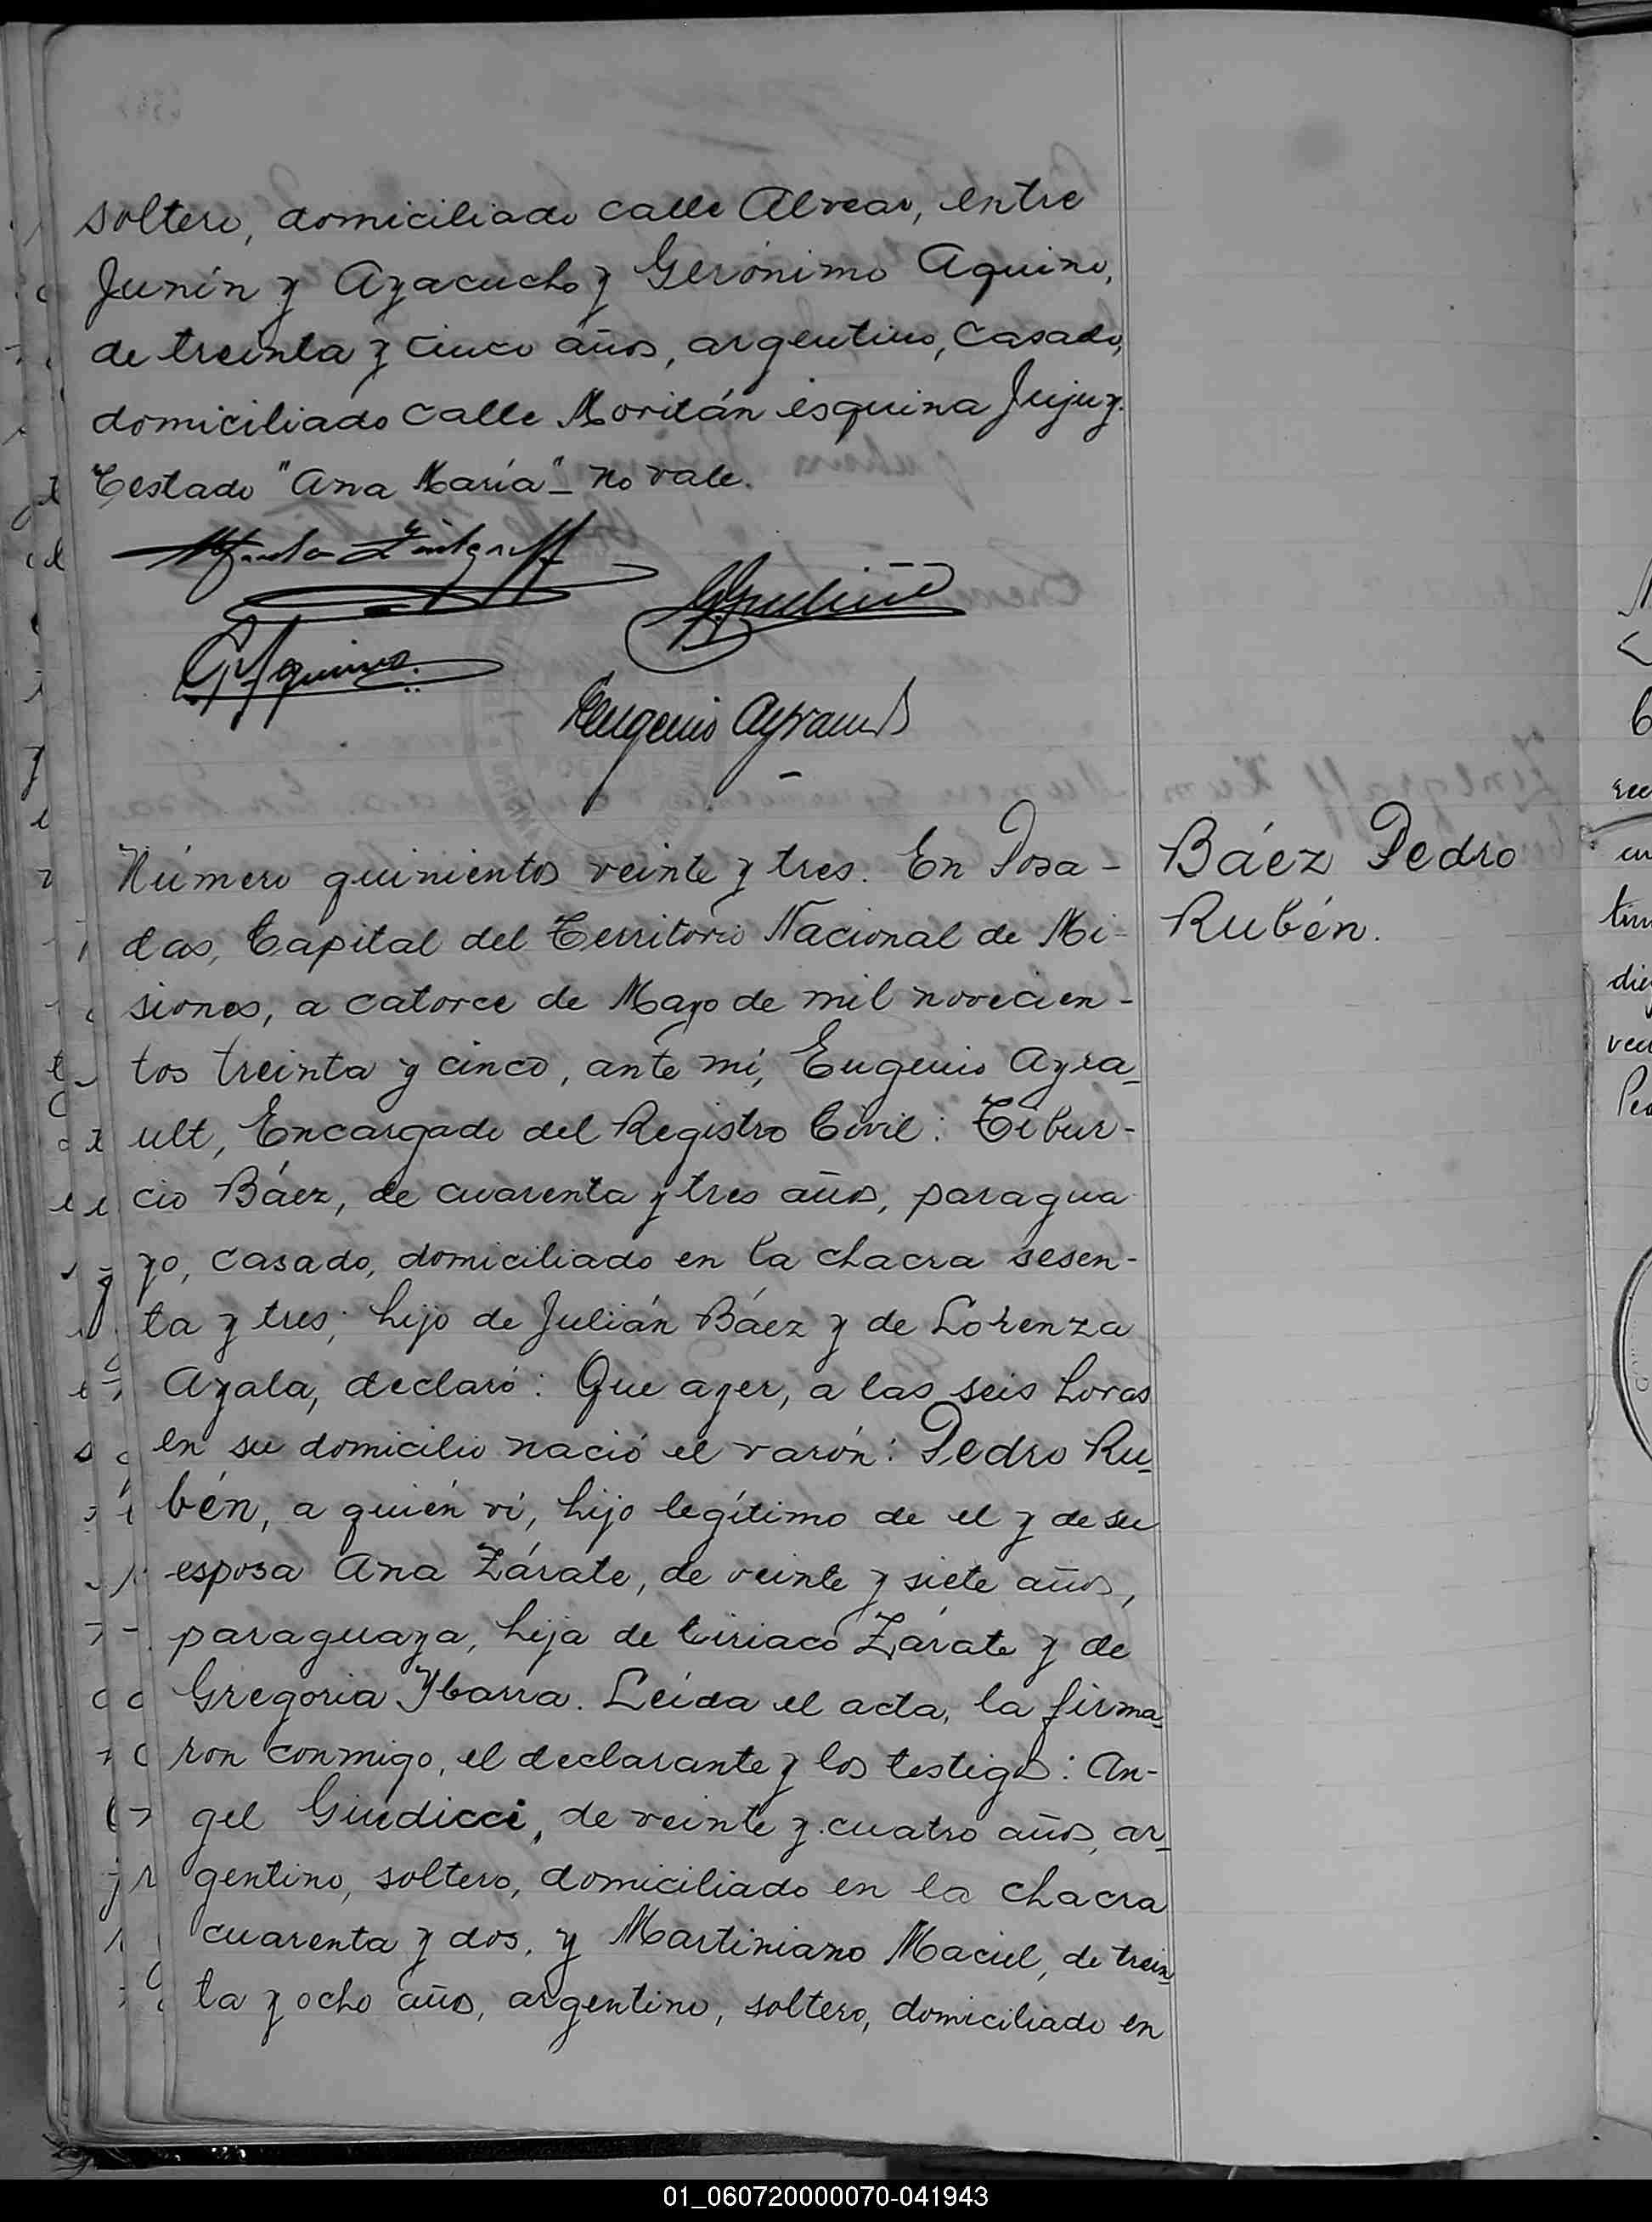 soltero, domiciliado calle Alvear, entre
Junín y Ayacucho y Gerónimo Aquino,
de treinta y cinco años, argentino, casado,
domiciliado calle Roritán esquina Jujuy.
Testado "Ana María" - no vale.
G Aquino
Eugenio Ayrault
Número quinientos veinte y tres. En Posa-
das, Capital del Territorio Nacional de Mi-
siones, a catorce de Mayo de mil novecien-
tos treinta y cinco, ante mí, Eugenio Ayra-
ult, Encargado del Registro Civil: Tibur-
cio Báez, de cuarenta y tres años, paragua
yo, casado, domiciliado en la chacra sesen-
ta y tres; hijo de Julián Báez y de Lorenza
Ayala, declaró: Que ayer, a las seis horas
en su domicilio nació el varón: Pedro Ru-
bén, a quién ví, hijo legítimo de el y de su
esposa Ana Zárate, de veinte y siete años,
paraguaya, hija de Ciriaco Zárate y de
Gregoria Ybarra. Leída el acta, la firma-
ron conmigo, el declarante y los testigos: An-
gel Giudicci, de veinte y cuatro años, ar-
gentino, soltero, domiciliado en la chacra
cuarenta y dos, y Martiniano Maciel, de trein-
ta y ocho años, argentino, soltero, domiciliado en
Báez Pedro
Rubén.
01_060720000070-041943